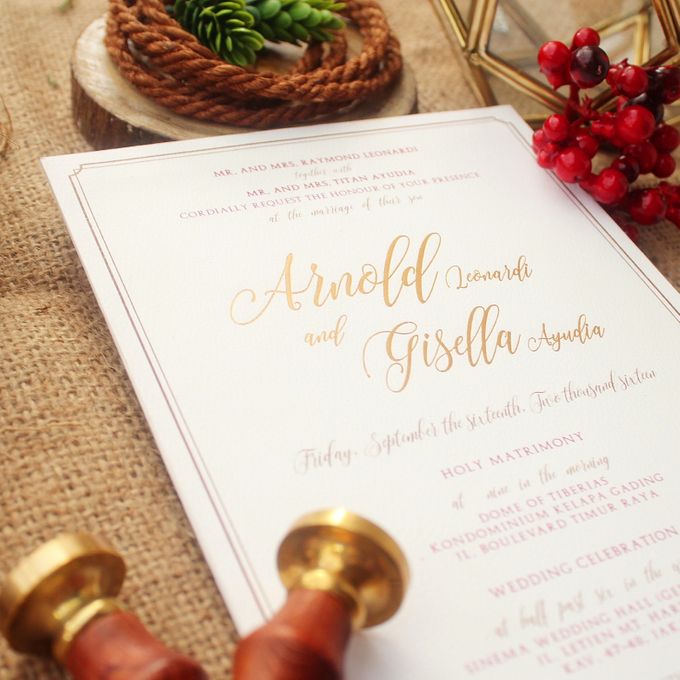 MR. AND MRS. RAYMOND LEONARDI
Together with
MR. AND MRS. TITAN AYUDIA
CORDIALLY REQUEST THE HONOUR OF YOUR PRESENCE
at the marriage of their son
Arnold Leonardi
and
Gisella Ayudia
Friday, September the sixteenth, Two thousand sixteen
HOLY MATRIMONY
at nine in the morning
DOME OF TIBERIAS
KONDOMINIUM KELAPA GADING
JL. BOULEVARD TIMUR RAYA
WEDDING CELEBRATION
at half past six in the
SINEMA WEDDING HALL
JL. LETJEN MT.
KAV.